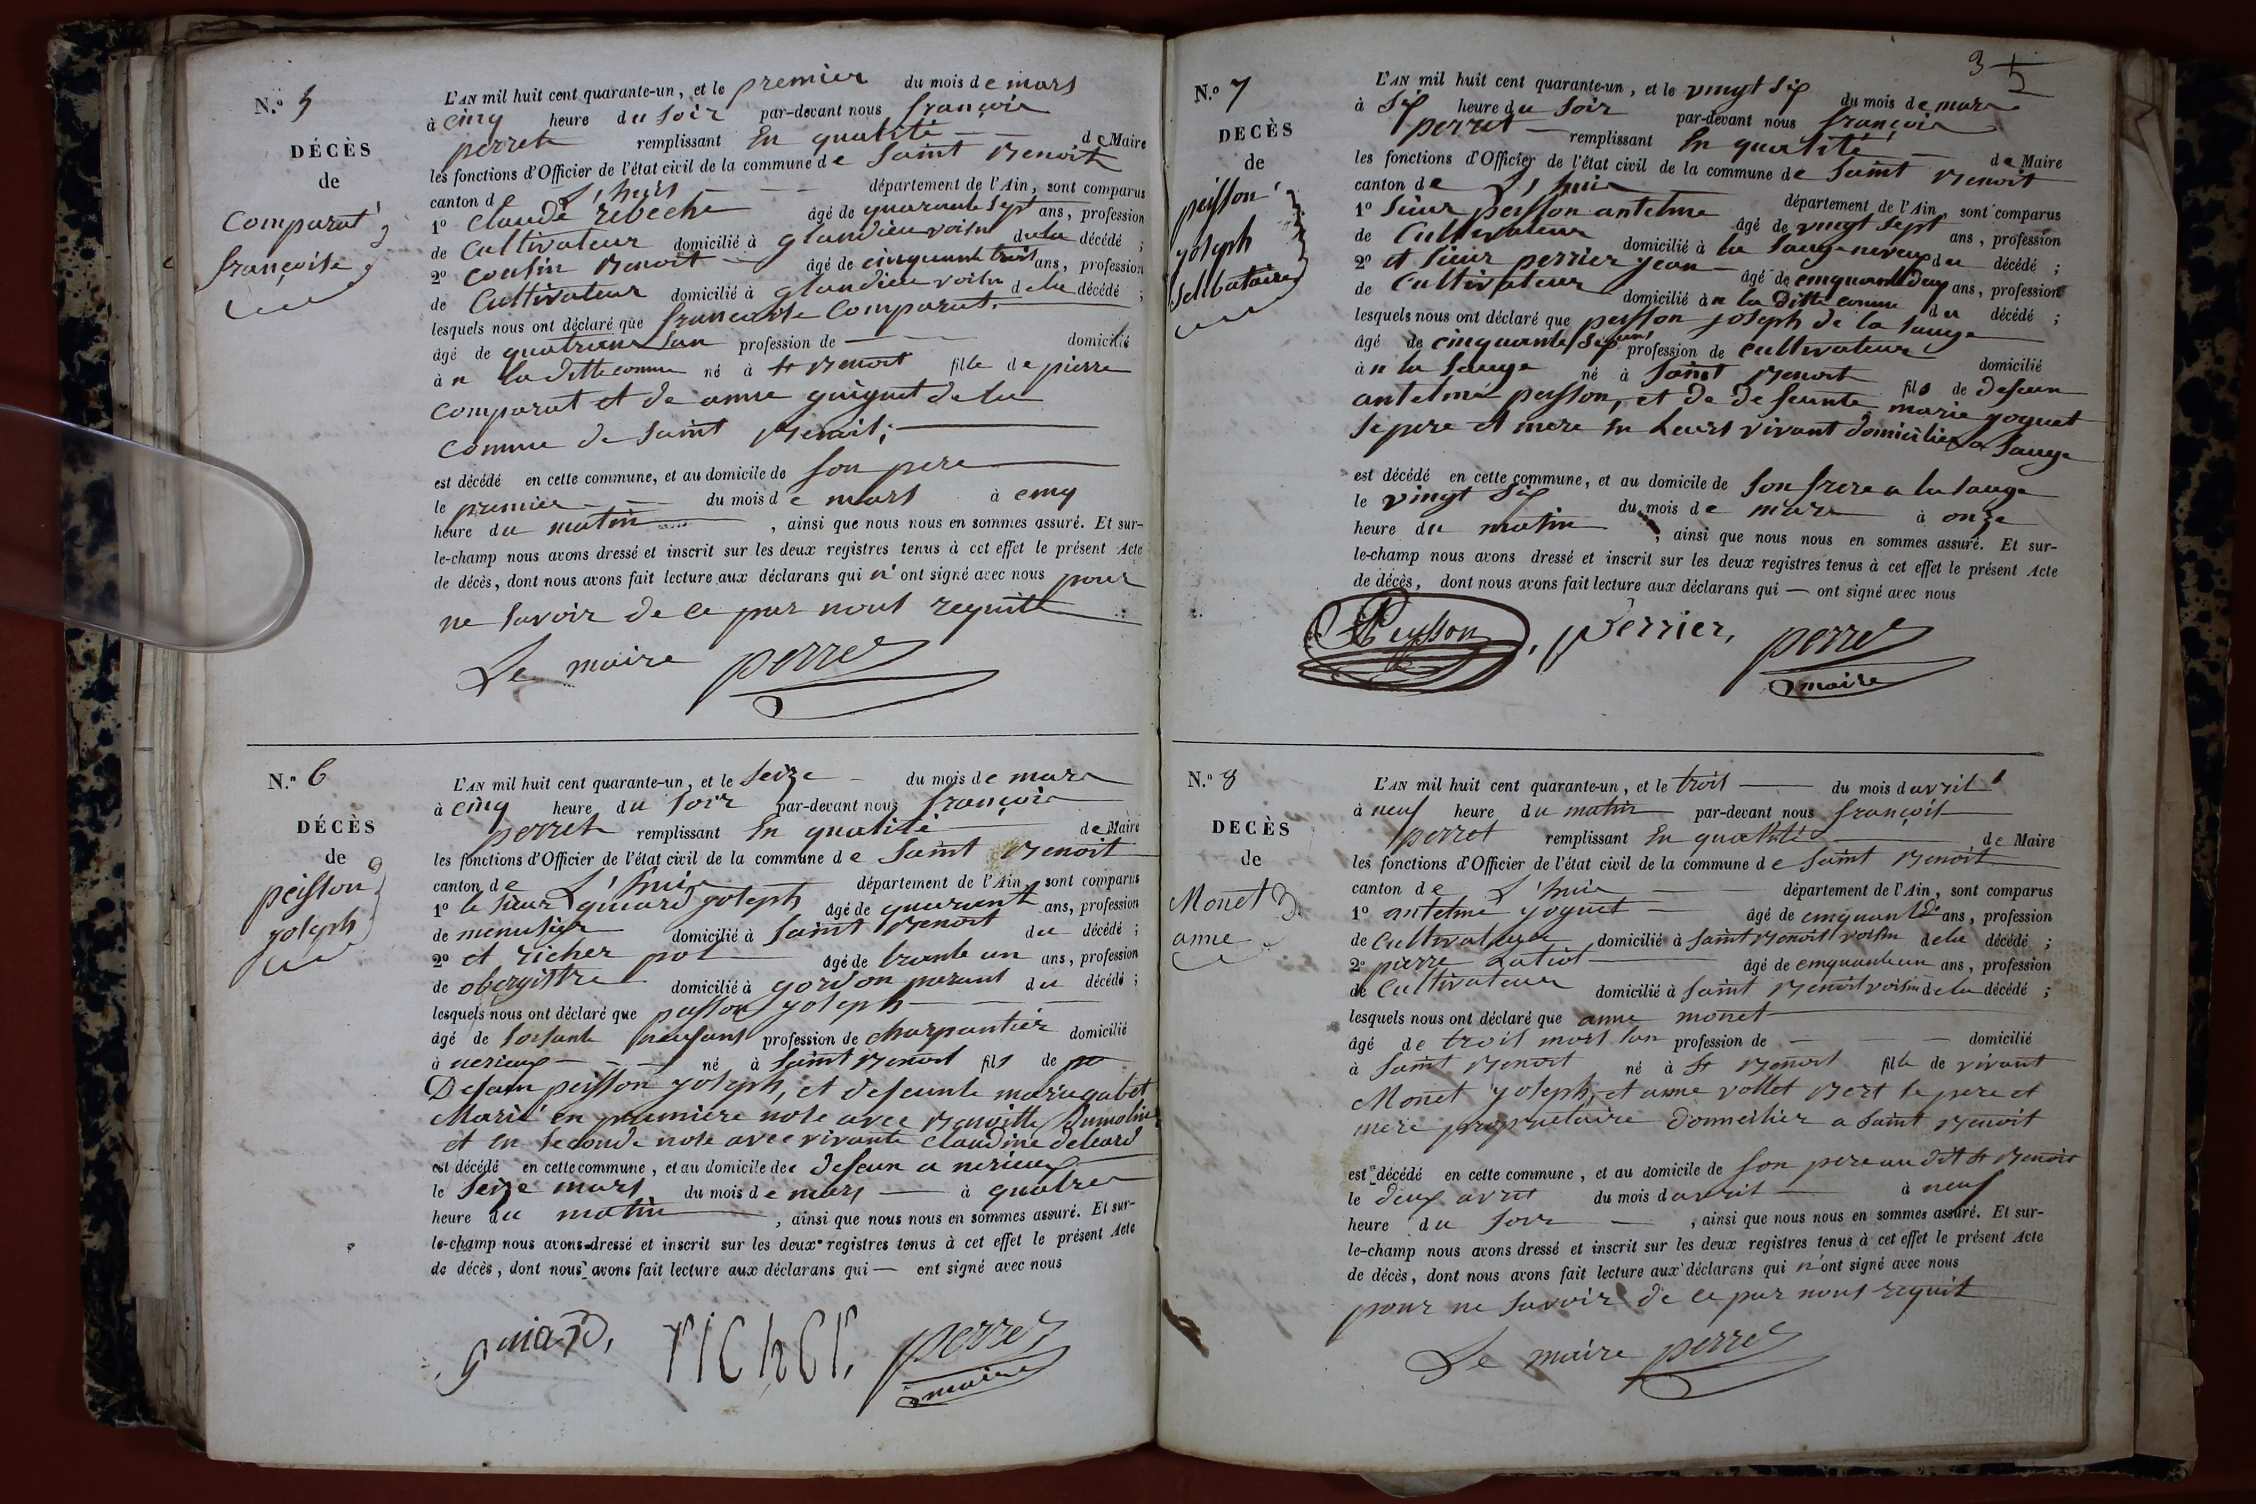 N.º 5
DÉCÈS
de
Comparat
françoise
L'AN mil huit cent quarante-un, et le premier du mois de mars
à cinq heure du soir par-devant nous françois
perret remplissant En qualité de Maire
les fonctions d'Officier de l'état civil de la commune de Saint Benoit
canton de L'huis département de l'Ain, sont comparus
1º Claude rebeche âgé de quarante sept ans, profession
de Cultivateur domicilié à glandieu voisin de la décédé ;
2º cousin Benoit âgé de cinquante trois ans, profession
de Cultivateur domicilié à glandieu voisin de la décédé ;
lesquels nous ont déclaré que françoise Comparat.
âgé de profession de domicilié
à n la ditte comune né à St Benoit fille de pierre
comparat et de anne guiguet de la
comune de Saint Benoit;
est décédé en cette commune, et au domicile de son pere
le premier du mois de mars à cinq
heure du matin, ainsi que nous nous en sommes assuré. Et sur-
le-champ nous avons dressé et inscrit sur les deux registres tenus à cet effet le présent Acte
de décès, dont nous avons fait lecture aux déclarans qui n'ont signé avec nous pour
ne savoir de ce par nous requits
Le maire perret
N.º 6
DÉCÈS
de
peisson
yoseph
L'AN mil huit cent quarante-un, et le seize du mois de mars
à cinq heure du soir par-devant nous françois
perret remplissant En qualité de Maire
les fonctions d'Officier de l'état civil de la commune de Saint Benoit
canton de L'huis département de l'Ain, sont comparus
1º le sieur guiard yoseph âgé de quarante ans, profession
de menusier domicilié à Saint Benoit du décédé ;
2º et richer pol âgé de trante un ans, profession
de obergistre domicilié à gordon parant du décédé ;
lesquels nous ont déclaré que peisson yoseph
âgé de soisante neufans profession de charpantier domicilié
à nerieux né à Saint Benoit fils de
Defeun peisson yoseph, et defeunte marie gabet
Marié en premiere nose avec Benoitte Dumolin
et en seconde nose avec vivante claudine deleard
est décédé en cette commune, et au domicile de defeun a nerieux
le Seize mars du mois de mars à quatre
heure du matin, ainsi que nous nous en sommes assuré. Et sur-
le-champ nous avons dressé et inscrit sur les deux registres tenus à cet effet le présent Acte
de décès, dont nous avons fait lecture aux déclarans qui — ont signé avec nous
guiard, richer, perret
maire
3
5
N.º 7
DECÈS
de
peisson
yoseph
selibataire
L'AN mil huit cent quarante-un, et le vingt six du mois de mars
à six heure du soir par-devant nous françois
perret remplissant En qualité de Maire
les fonctions d'Officier de l'état civil de la commune de Saint Benoit
canton de L'huis département de l'Ain, sont comparus
1º sieur peisson antelme âgé de vingt sept ans, profession
de Cultivateur domicilié à la Sauge neveux du décédé ;
2º et sieur perrier jean âgé de cinquante deux ans, profession
de Cultivateur domicilié à n la ditte comune du décédé ;
lesquels nous ont déclaré que peisson yoseph de la Sauge
âgé de cinquante six ans profession de cultivateur domicilié
à n la Sauge né à Saint Benoit fils de defeun
antelme peisson, et de defeunte marie yoguet
se pere et mere en leurs vivant domiciliés a Sauge
est décédé en cette commune, et au domicile de son frere a la Sauge
le vingt six du mois de mars à onze
heure du matin, ainsi que nous nous en sommes assuré. Et sur-
le-champ nous avons dressé et inscrit sur les deux registres tenus à cet effet le présent Acte
de décès, dont nous avons fait lecture aux déclarans qui — ont signé avec nous
Peysson, perrier, perret
maire
N.º 8
DECÈS
de
Monet
anne
L'AN mil huit cent quarante-un, et le trois du mois d'avril
à neuf heure du matin par-devant nous françois
perret remplissant En qualité de Maire
les fonctions d'Officier de l'état civil de la commune de Saint Benoit
canton de L'huis département de l'Ain, sont comparus
1º antelme yoguet âgé de cinquante ans, profession
de Cultivateur domicilié à Saint Benoit voisin de la décédé ;
2º pierre âgé de cinquante un ans, profession
de Cultivateur domicilié à Saint Benoit voisin de la décédé ;
lesquels nous ont déclaré que anne monet
âgé de trois mois profession de domicilié
à Saint Benoit né à St Benoit fille de vivant
Monet yoseph, et anne vollet Bert le pere et
mere proprietaire domicilier a Saint Benoit
est décédé en cette commune, et au domicile de son pere au dit St Benoit
le deux avril du mois d'avril à neuf
heure du soir, ainsi que nous nous en sommes assuré. Et sur-
le-champ nous avons dressé et inscrit sur les deux registres tenus à cet effet le présent Acte
de décès, dont nous avons fait lecture aux déclarans qui n'ont signé avec nous
pour ne savoir de ce par nous requit
Le maire perret